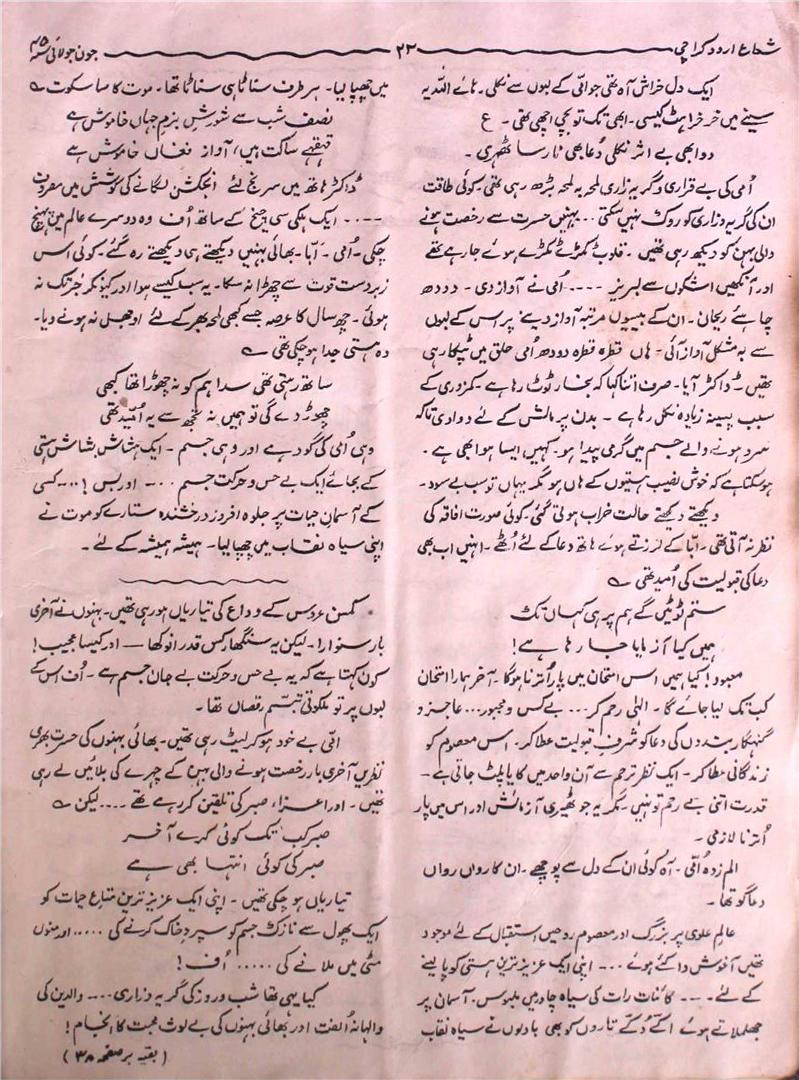 شعاع اردو کراچی
۲۳
جون جولائی ۴۵ء
ایک دل خراش آہ تھی جو امّی کے لبوں سے نکلی۔ ہائے اللہ یہ
سینے میں خرخراہٹ کیسی۔ ابھی تک تو بچی اچھی تھی۔ ع
دوا بھی بے اثر نکلی دُعا بھی نارسا ٹھہری۔
اُمی کی بے قراری و گریہ زاری لمحہ بہ لمحہ بڑھ رہی تھی۔ کوئی طاقت
ان کی گریہ و زاری کو روک نہیں سکتی ... بہنیں حسرت سے رخصت ہونے
والی بہن کو دیکھ رہی تھیں۔ قلوب ٹکڑے ٹکڑے ہوئے جا رہے تھے
اور آنکھیں اشکوں سے لبریز ---- اُمی نے آواز دی۔ دودھ
چاہئے ریحان۔ ان کے بیسیوں مرتبہ آواز دینے پر اس کے لبوں
سے بہ مشکل آواز آئی۔ ہاں قطرہ قطرہ دودھ اُمی حلق میں ٹپکا رہی
تھیں۔ ڈاکٹر آیا۔ صرف اتنا کہا کہ بخار ٹوٹ رہا ہے۔ کمزوری کے
سبب پسینہ زیادہ نکل رہا ہے۔ بدن پر مالش کے لئے دوا دی تاکہ
سرد ہونے والے جسم میں گرمی پیدا ہو۔ کہیں ایسا ہوا بھی ہے۔
ہو سکتا ہے کہ خوش نصیب ہستیوں کے ہاں ہو مگر یہاں تو سب بے سود۔
دیکھتے دیکھتے حالت خراب ہوتی گئی۔ کوئی صورت افاقہ کی
نظر نہ آتی تھی۔ ابّا کے لرزتے ہوئے ہاتھ دعا کے لئے اُٹھے۔ انہیں اب بھی
دعا کی قبولیت کی اُمید تھی ؎
ستم ٹوٹیں گے ہم پر ہی کہاں تک
ہمیں کیا آزمایا جا رہا ہے!
معبود! کیا ہمیں اس امتحان میں پار اُترنا ہوگا۔ آخر ہمارا امتحان
کب تک لیا جائے گا۔ الٰہی رحم کر ... بے کس و مجبور ... عاجز و
گنہگار بندوں کی دعا کو شرفِ قبولیت عطا کر۔ اس معصوم کو
زندگانی عطا کر۔ ایک نظرِ ترحم سے آن واحد میں کایا پلٹ جاتی ہے۔
قدرت اتنی بے رحم تو نہیں۔ مگر یہ جو ٹھیری آزمائش اور اس میں پار
اُترنا لازمی۔
الم زدہ اُمّی۔ آہ کوئی ان کے دل سے پوچھے۔ ان کا رواں رواں
دعا گو تھا۔
عالمِ علوی پر بزرگ اور معصوم روحیں استقبال کے لئے موجود
تھیں آغوش وا کئے ہوئے ... اپنی ایک عزیز ترین ہستی کو پا لینے
کے لئے۔ --- کائنات رات کی سیاہ چادر میں ملبوس۔ آسمان پر
جھلملاتے ہوئے اکّے دُکّے تاروں کو بھی بادلوں نے سیاہ نقاب
میں چھپا لیا۔ ہر طرف سناٹا ہی سناٹا تھا۔ موت کا سا سکوت ؎
نصف شب سے شورشِ بزمِ جہاں خاموش ہے
قہقہے ساکت ہیں، آواز فغاں خاموش ہے
ڈاکٹر ہاتھ میں سرنج لئے انجکشن لگانے کی کوشش میں مصروف
---- ایک ہلکی سی چیخ کے ساتھ اُف وہ دوسرے عالم میں پہنچ
چکی۔ اُمی۔ ابّا۔ بھائی بہنیں دیکھتے ہی دیکھتے رہ گئے۔ کوئی اس
زبردست قوت سے چھڑا نہ سکا۔ یہ سب کیسے ہوا اور کیونکر خبر تک نہ
ہوئی۔ چھ سال کا عرصہ جسے کبھی لمحہ بھر کے لئے اوجھل نہ ہونے دیا۔
وہ ہستی جدا ہو چکی تھی ؎
ساتھ رہتی تھی سدا ہم کو نہ چھوڑا تھا کبھی
چھوڑ دے گی تو ہمیں نہ تجھ سے یہ اُمید تھی
وہی اُمی کی گود ہے اور وہی جسم۔ ایک ہشاش بشاش ہستی
کے بجائے ایک بے حس و حرکت جسم ... اور بس! ... کسی
کے آسمانِ حیات پر جلوہ افروز درخشندہ ستارے کو موت نے
اپنی سیاہ نقاب میں چھپا لیا۔ ہمیشہ ہمیشہ کے لئے۔
کمسن عروس کے وداع کی تیاریاں ہو رہی تھیں۔ بہنوں نے آخری
بار سنوارا۔ لیکن یہ سنگھار کس قدر انوکھا — اور کیسا عجیب!
کون کہتا ہے کہ یہ بے حس و حرکت بے جان جسم ہے۔ اُف اس کے
لبوں پر تو ملکوتی تبسّم رقصاں تھا۔
امّی بے خود ہو کر لپٹ رہی تھیں۔ بھائی بہنوں کی حسرت بھری
نظریں آخری بار رخصت ہونے والی بہن کے چہرے کی بلائیں لے رہی
تھیں۔ اور اعزاء صبر کی تلقین کر رہے تھے ---- لیکن ؎
صبر کب تک کوئی کرے آخر
صبر کی کوئی انتہا بھی ہے
تیاریاں ہو چکی تھیں۔ اپنی ایک عزیز ترین متاعِ حیات کو
ایک پھول سے نازک جسم کو سپردِ خاک کرنے کی ..... اور منوں
مٹی میں ملانے کی ..... اُف!
کیا یہی تھا شب و روز کی گریہ و زاری ---- والدین کی
والہانہ اُلفت اور بھائی بہنوں کی بے لوث محبت کا انجام!
(بقیہ بر صفحہ ۳۸)